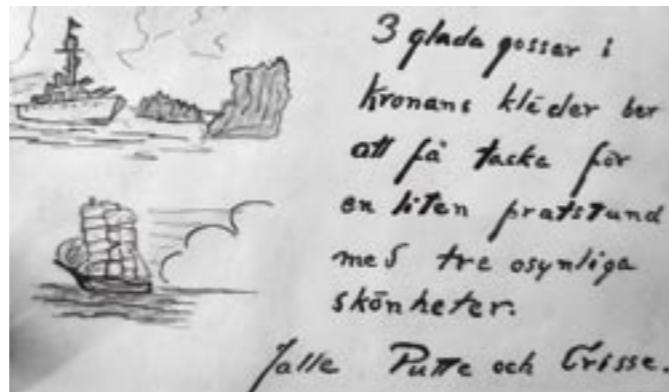 3 glada gossar i
Kronans kläder ber
att få tacka för
en liten pratstund
med tre osynliga
skönheter.
Jalle Putte och Crisse.